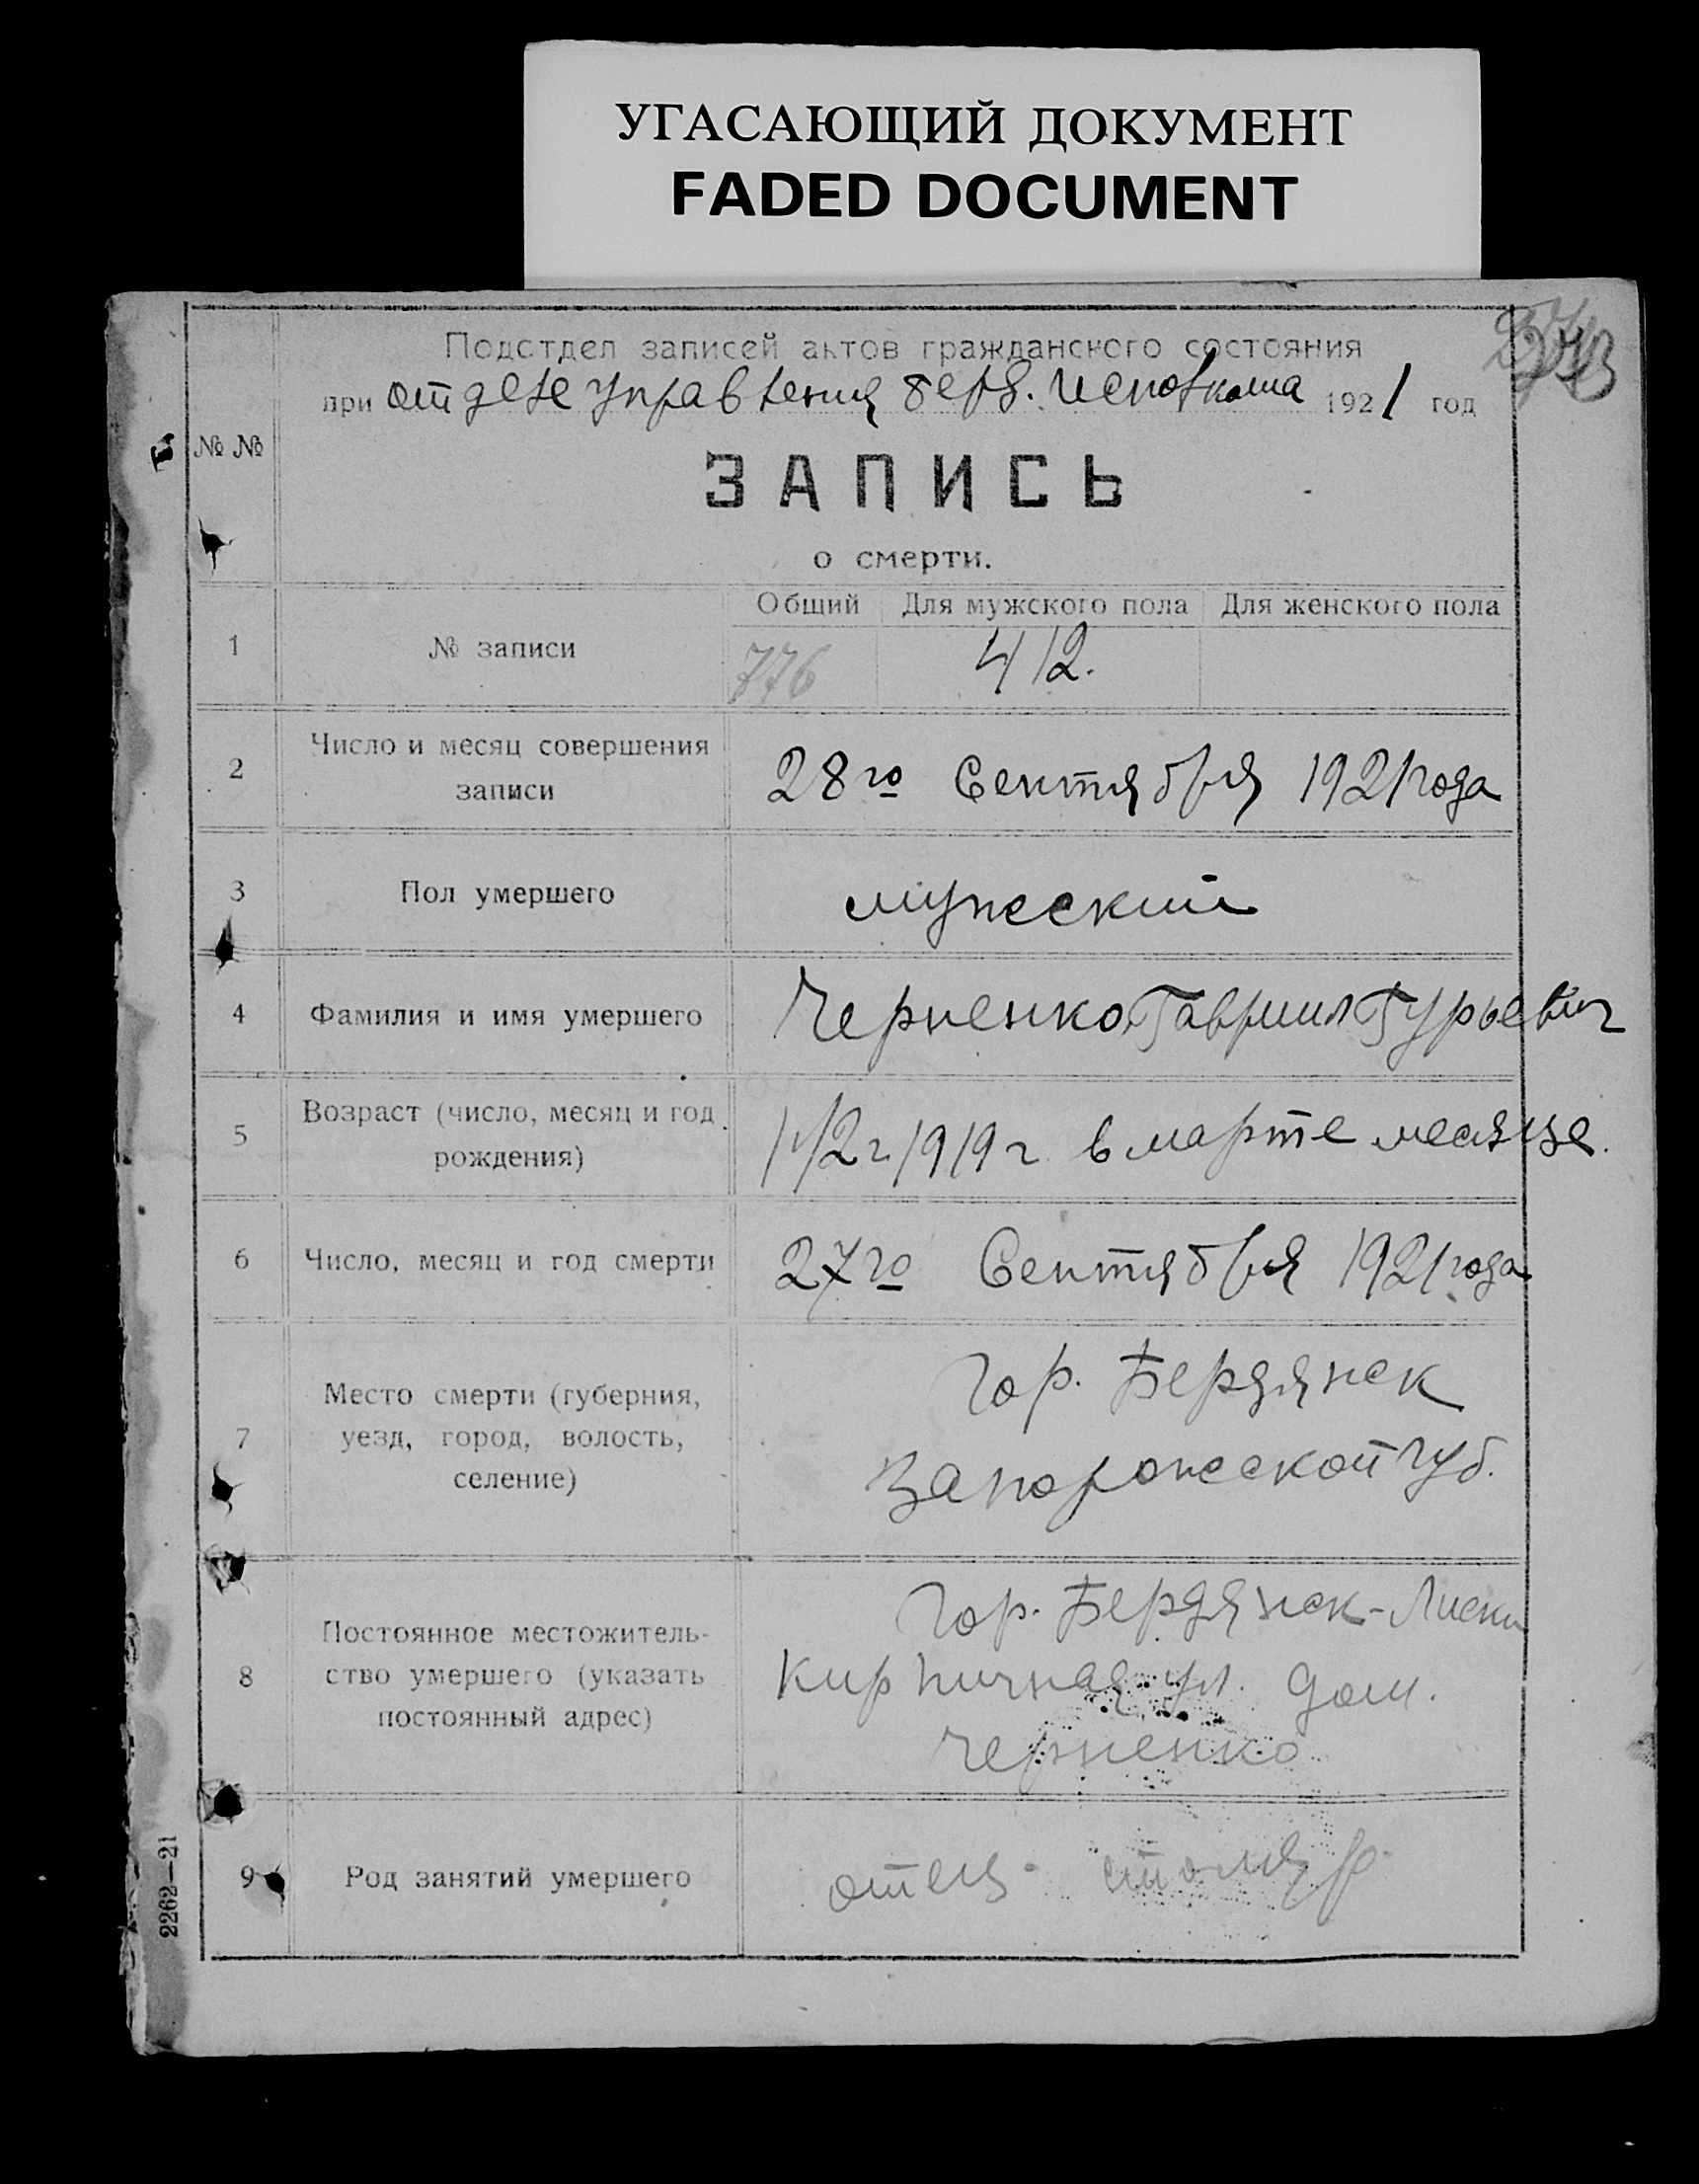 УГАСАЮЩИЙ ДОКУМЕНТ
FADED DOCUMENT
Подотдел записей актов гражданского состояния
при отделе управления берд. Исполкома 1921 год
№ №
ЗАПИСЬ
о смерти.
Общий Для мужского пола Для женского пола
1 № записи 776 412.
2 Число и месяц совершения
записи
28го Сентября 1921 года
3 Пол умершего мужеский
4 Фамилия и имя умершего Черненко Гавриил Гурьевич
5 Возраст (число, месяц и год
рождения)
1 1/2 г. 1919 г в марте месяце.
6 Число, месяц и год смерти 27го Сентября 1921 года
7 Место смерти (губерния,
уезд, город, волость,
селение)
Гор. Бердянск
Запорожеской Губ.
8 Постоянное местожитель-
ство умершего (указать
постоянный адрес)
Гор. Бердянск-Лиски
Кирпичная ул. дом.
Черненко
9 Род занятий умершего отец - столяр.
2262—21